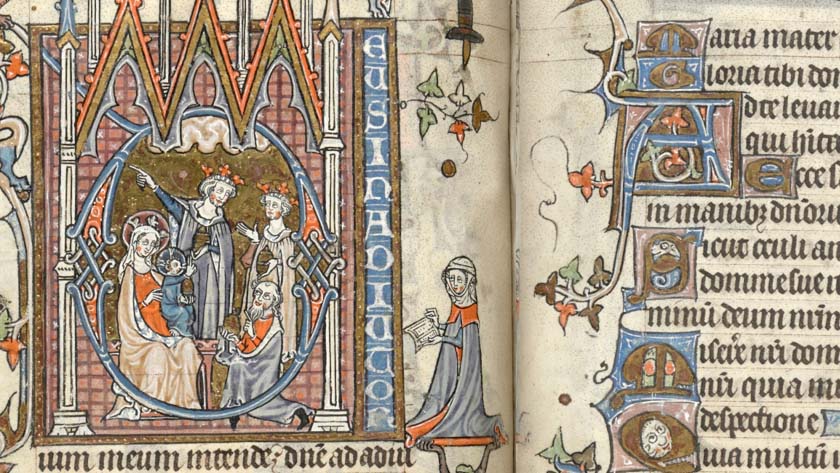 EUSINADIUTO
ium meum intende: dñe ad adiu
Maria mater
Gloria tibi do
Ad te leua
qui hita
Ecce s
in manibꝫ dñoru
Sicut oculi an
domine sue
minū deum nrm
Misere nri dom
nri quia m
despectione
Quia multū